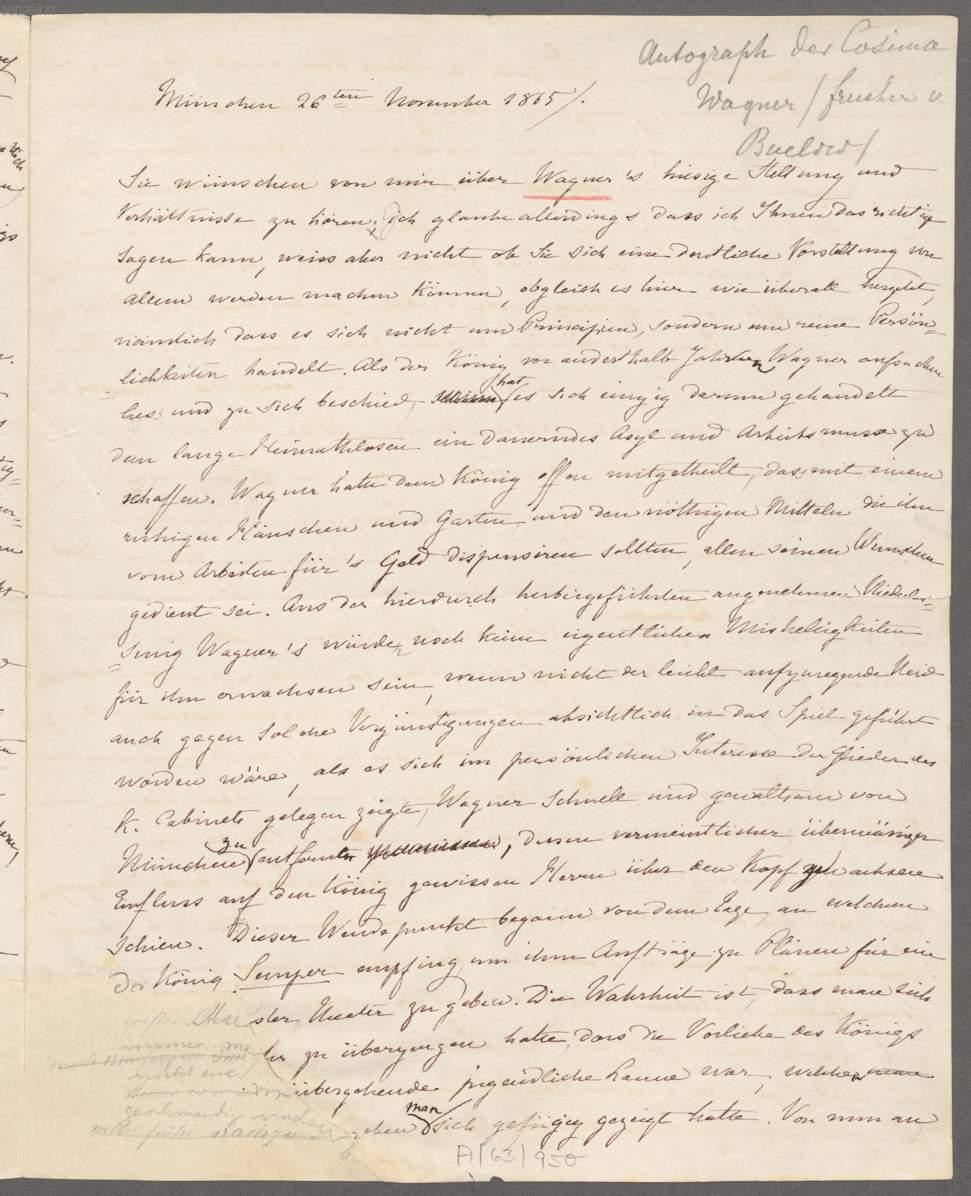 00096471
Autograph der Cosima
Wagner / frueher v.
Buelow /
München 26ten November 1865/.
Sie wünschen von mir über Wagner's hiesige Stellung und
Verhältnisse zu hören; Ich glaube allerdings dass ich Ihnen das richtige
sagen kann, weiss aber nicht ob Sie sich eine deutliche Vorstellung von
allem werden machen können, obgleich es hier wie überall hergeht,
nämlich dass es sich nicht um Principien, sondern um reine Persön=
lichkeiten handelt. Als der König vor anderthalb Jahren Wagner aufsuchen
liess und zu sich beschied, hat es sich einzig darum gehandelt
dem lange Heimathlosen ein dauerndes Asyl und Arbeitsmusse zu
schaffen. Wagner hatte dem König offen mitgetheilt, dass mit einem
ruhigen Häuschen und Garten und den nöthigen Mitteln die ihn
vom Arbeiten für's Geld dispensiren sollten, allen seinen Wünschen
gedient sei. Aus der hierdurch herbeigeführten angenehmen Niederlas=
=sung Wagner's würden noch keine eigentlichen Mishelligkeiten
für ihn erwachsen sein, wenn nicht der leicht aufzuregende Neid
auch gegen solche Vergünstigungen absichtlich in das Spiel geführt
worden wäre, als es sich im persönlichen Interesse der Glieder des
k. Cabinets gelegen zeigte, Wagner schnell und gewaltsam von
München zu entfernen, dessen vermeintlicher übermässiger
Einfluss auf den König gewissen Herren über den Kopf zu wachsen
schien. Dieser Wendepunkt begann von dem Tage, an welchem
der König Semper empfing um ihm Aufträge zu Plänen für ein
grosses Muster Theater zu geben. Die Wahrheit ist, dass man sich
immer mehr zu überzeugen hatte, dass die Vorliebe des Königs
nicht eine
vorübergehende jugendliche Laune war, welcher
geschmeidig nachzu
geben man sich gefügig gezeigt hatte. Von nun an
A/63/950